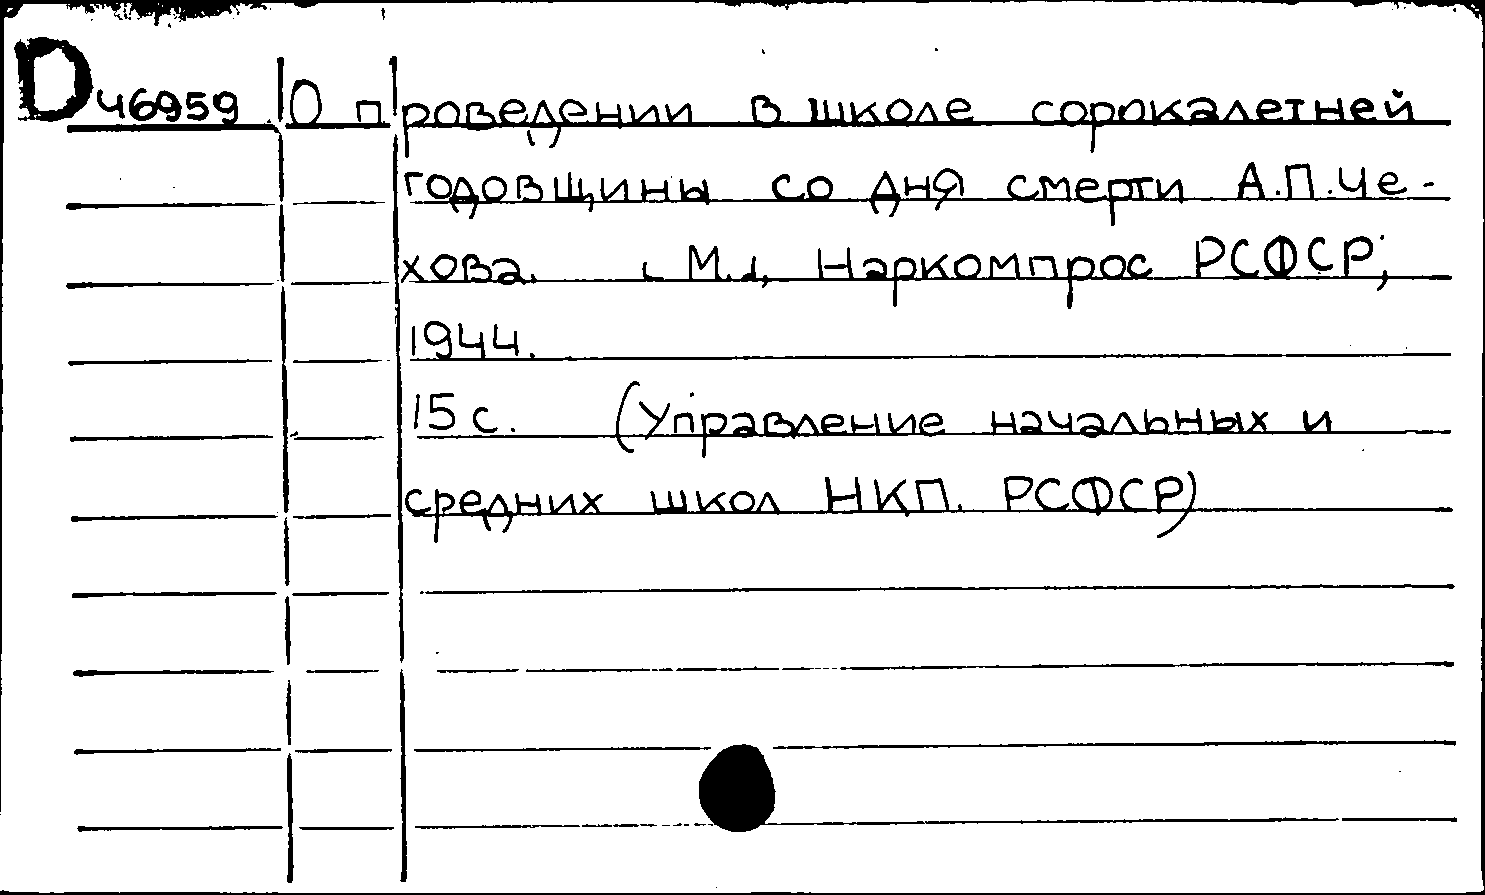 D 46959 О проведении в школе сорокалетней
годовщины со дня смерти А.П.Че-
хова. [М.], Наркомпрос РСФСР,
1944.
15 с. (Управление начальных и
средних школ НКП. РСФСР)